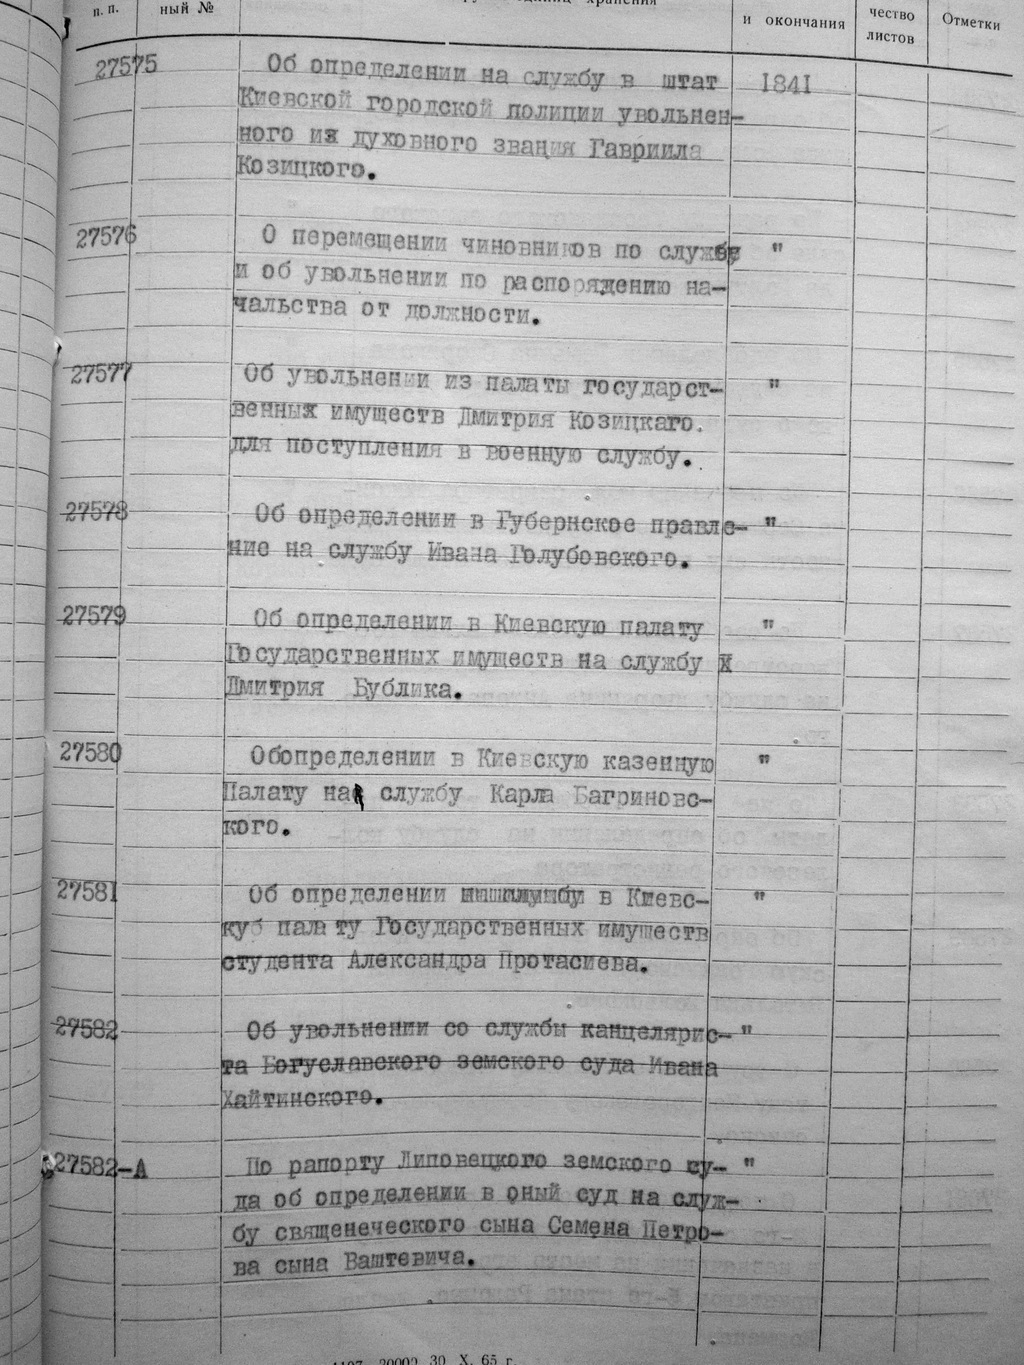 п. п.
ный №
хранения
и окончания
чество
листов
Отметки
27575 Об определении на службу в штат 1841
Киевской городской полиции увольнен-
ного из духовного звания Гавриила
Козицкого.
27576 О перемещении чиновников по службе "
и об увольнении по распорядению на-
чальства от должности.
27577 Об увольнении из палаты государст- "
венных имуществ Дмитрия Козицкаго.
для поступления в военную службу.
27578 Об определении в Губернское правле- "
ние на службу Ивана Голубовского.
27579 Об определении в Киевскую палату "
Государственных имуществ на службу Х
Дмитрия Бублика.
27580 Обопределении в Киевскую казенную "
Палату на службу Карла Багриновс-
кого.
27581 Об определении в Киевс- "
куб палату Государственных имуществ
студента Александра Протасиева.
27582 Об увольнении со службы канцелярис- "
та Богуславского земского суда Ивана
Хайтинского.
27582-А По рапорту Липовецкого земского су- "
да об определении в оный суд на служ-
бу священеческого сына Семена Петро-
ва сына Ваштевича.
1197 20002 30 X. 65 г.